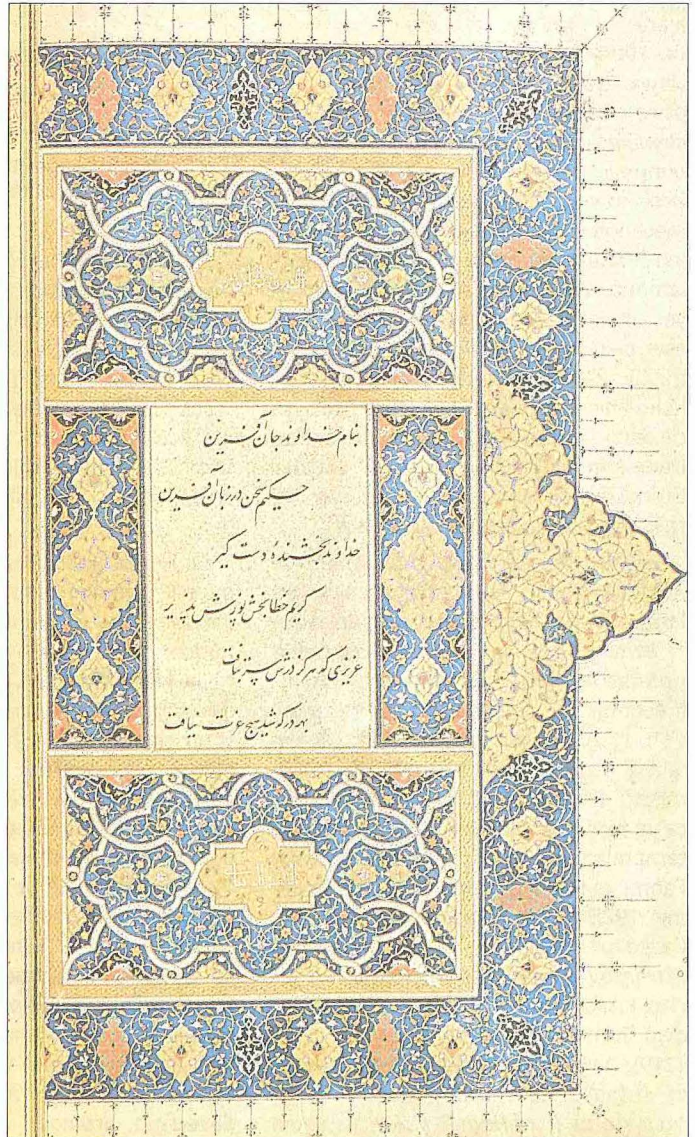 بنام خداوند جان آفرین
حکیم سخن در زبان آفرین
خداوند بخشندهٔ دست گیر
کریم خطا بخش پوزش پذیر
عزیزی که هر کز درش سر بتافت
بهر در که شد هیچ عزت نیافت